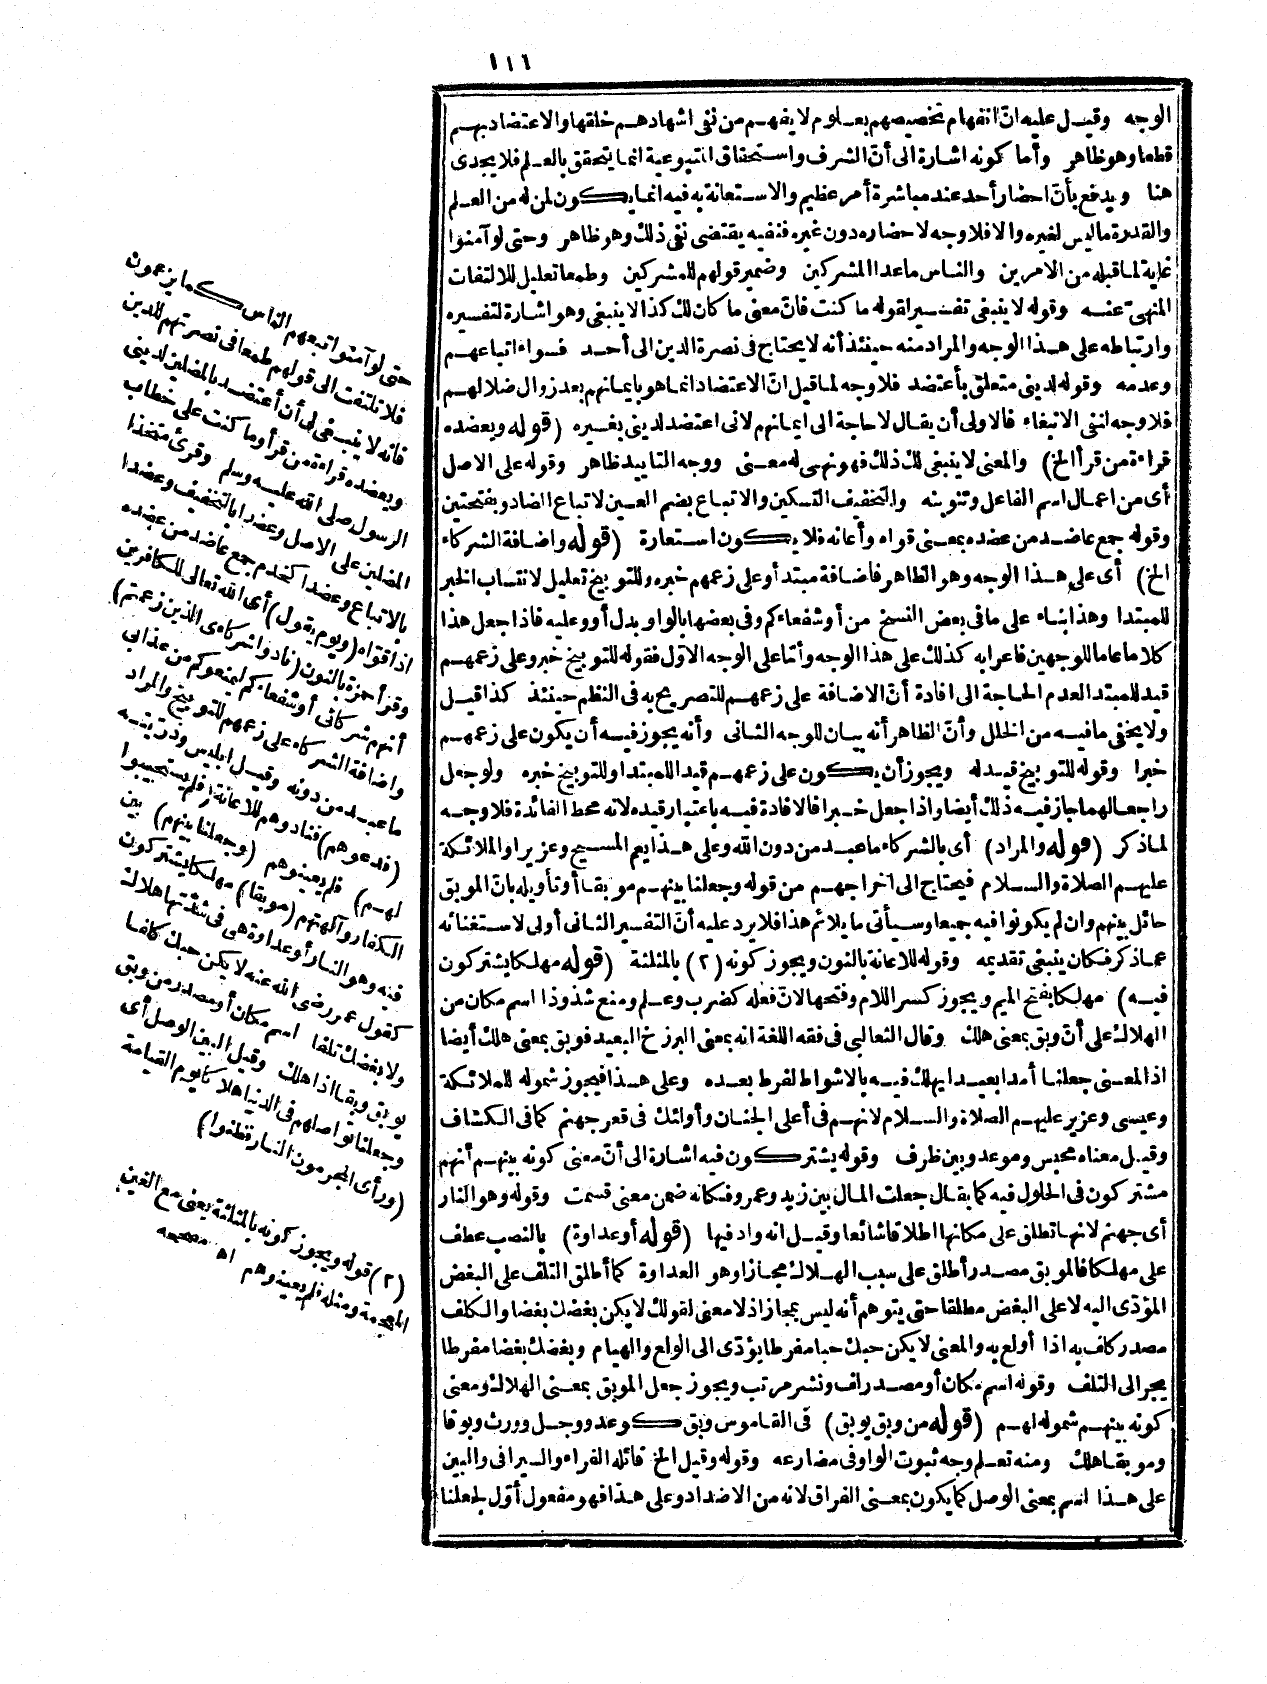 ١١٦
الوجه وقيل عليه ان انفهام تخصيصهم بعلوم لا يفهم من نفى اشهادهم خلقها والاعتضاد بهم
قطعا وهو ظاهر وأما كونه اشارة الى أن الشرف واستحقاق المتبوعية انما يتحقق بالعلم فلا يجدى
هنا ويدفع بأن احضار أحد عند مباشرة أمر عظيم والاستعانة به فيه انما يكون لمن له من العلم
والقدرة ما ليس لغيره والا فلا وجه لاحضاره دون غيره فنفيه يقتضى نفى ذلك وهو ظاهر وحتى لو آمنوا
غاية لما قبله من الامرين والناس ما عدا المشركين وضمير قولهم للمشركين وطمعا تعليل للالتفات
المنهىّ عنه وقوله لا ينبغى تفسير لقوله ما كنت فان معنى ما كان لك كذا لا ينبغى وهو اشارة لتفسيره
وارتباطه على هذا الوجه والمراد منه حينئذ أنه لا يحتاج فى نصرة الدين الى أحد فسواء اتباعهم
وعدمه وقوله لدينى متعلق بأعتضد فلا وجه لما قيل ان الاعتضاد انما هو بايمانهم بعد زوال ضلالهم
فلا وجه لنفى الانبغاء فالاولى أن يقال لا حاجة الى ايمانهم لانى اعتضد لدينى بغيره (قوله ويعضده
قراءة من قرأ الخ) والمعنى لا ينبغى لك ذلك فهو نهى له معنى ووجه التاييد ظاهر وقوله على الاصل
أى من اعمال اسم الفاعل وتنوينه والتخفيف التسكين والاتباع بضم العين لاتباع الضاد وبفتحتين
وقوله جمع عاضد من عضده بمعنى قواه وأعانه فلا يكون استعارة (قوله واضافة الشركاء
الخ) أى على هذا الوجه وهو الظاهر فاضافة مبتدأ وعلى زعمهم خبره وللتوبيخ تعليل لانتساب الخبر
للمبتدا وهذا بناء على ما فى بعض النسخ من أو شفعاءكم وفى بعضها بالواو بدل أو وعليه فاذا جعل هذا
كلاما عاما للوجهين فاعرابه كذلك على هذا الوجه وأما على الوجه الاوّل فقوله للتوبيخ خبر وعلى زعمهم
قيد للمبتدا لعدم الحاجة الى افادة أن الاضافة على زعمهم للتصريح به فى النظم حينئذ كذا قيل
ولا يخفى ما فيه من الخلل وأن الظاهر أنه بيان للوجه الثانى وأنه يجوز فيه أن يكون على زعمهم
خبرا وقوله للتوبيخ قيد له ويجوز أن يكون على زعمهم قيد اللمبتدا وللتوبيخ خبره ولو جعل
راجعا لهما جاز فيه ذلك أيضا واذا جعل خبرا فالافادة فيه باعتبار قيده لانه محط الفائدة فلا وجه
لما ذكر (قوله والمراد) أى بالشركاء ما عبد من دون الله وعلى هذا يعم المسيح وعزيرا والملائكة
عليهم الصلاة والسلام فيحتاج الى اخراجهم من قوله وجعلنا بينهم موبقا أو تأويله بان الموبق
حائل بينهم وان لم يكونوا فيه جميعا وسيأتى ما يلائم هذا فلا يرد عليه أن التفسير الثانى أولى لاستغنائه
عما ذكر فكان ينبغى تقديمه وقوله للاعانة بالنون ويجوز كونه (٢) بالمثلثة (قوله مهلكا يشتركون
فيه) مهلكا بفتح الميم ويجوز كسر اللام وفتحها لان فعله كضرب وعلم ومنع شذوذا اسم مكان من
الهلاك على أن وبق بمعنى هلك وقال الثعالبى فى فقه اللغة انه بمعنى البرزخ البعيد فوبق بمعنى هلك أيضا
اذ المعنى جعلنا أمدا بعيدا يهلك فيه بالاشواط لفرط بعده وعلى هذا فيجوز شموله للملائكة
وعيسى وعزير عليهم الصلاة والسلام لانهم فى أعلى الجنان وأولئك فى قعر جهنم كما فى الكشاف
وقيل معناه محبس وموعد وبين ظرف وقوله يشتركون فيه اشارة الى أن معنى كونه بينهم أنهم
مشتركون فى الحلول فيه كما يقال جعلت المال بين زيد وعمرو فكانه ضمن معنى قسمت وقوله وهو النار
أى جهنم لانها تطلق على مكانها اطلاقا شائعا وقيل انه واد فيها (قوله أو عداوة) بالنصب عطف
على مهلكا فالموبق مصدر أطلق على سبب الهلاك مجازا وهو العداوة كما أطلق التلف على البغض
المؤدّى اليه لا على البغض مطلقا حتى يتوهم أنه ليس بمجاز اذ لا معنى لقولك لا يكن بغضك بغضا والكلف
مصدر كاف به اذا أولع به والمعنى لا يكن حبك حبا مفرطا يؤدّى الى الولع والهيام وبغضك بغضا مفرطا
يجر الى التلف وقوله اسم مكان أو مصدر لف ونشر مرتب ويجوز جعل الموبق بمعنى الهلاك ومعنى
كونه بينهم شموله لهم (قوله من وبق يوبق) فى القاموس وبق كوعد ووجل وورث وبوقا
وموبقا هلك ومنه تعلم وجه ثبوت الواو فى مضارعه وقوله وقيل الخ قائله الفراء والسيرافى والبين
على هذا اسم بمعنى الوصل كما يكون بمعنى الفراق لانه من الاضداد وعلى هذا فهو مفعول أوّل لجعلنا
حتى لو آمنوا اتبعهم الناس كما يزعمون
فلا تلتفت الى قولهم طمعا فى نصرتهم للدين
فانه لا ينبغى لى أن أعتضد بالمضلين لدينى
ويعضده قراءة من قرأ وما كنت على خطاب
الرسول صلى الله عليه وسلم وقرئ متخذا
المضلين على الاصل وعضدا بالتخفيف وعضدا
بالاتباع وعضدا كخدم جمع عاضد من عضده
اذا قواه (ويوم يقول) أى الله تعالى للكافرين
وقرأ حمزة بالنون (نادوا شركاءى الذين زعمتم)
أنهم شركائى أو شفعاءكم ليمنعوكم من عذابى
واضافة الشركاء على زعمهم للتوبيخ والمراد
ما عبد من دونه وقيل ابليس وذريته
(فدعوهم) فنادوهم للاعانة (فلم يستجيبوا
لهم) فلم يعينوهم (وجعلنا بينهم) بين
الكفار وآلهتهم (موبقا) مهلكا يشتركون
فيه وهو النار أو عداوة هى فى شدّتها هلاك
كقول عمر رضى الله عنه لا يكن حبك كلفا
ولا بغضك تلفا اسم مكان أو مصدر من وبق
يوبق وبقا اذا هلك وقيل البين الوصل أى
وجعلنا تواصلهم فى الدنيا هلاكا يوم القيامة
(ورأى المجرمون النار فظنوا)
(٢) قوله ويجوز كونه بالمثلثة يعنى مع الغين
المعجمة ومثله فلم يعينوهم اه مصححه